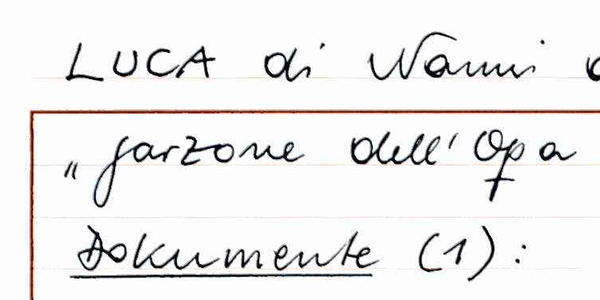 LUCA di Nanni
„garzone dell' Opa
Dokumente (1):